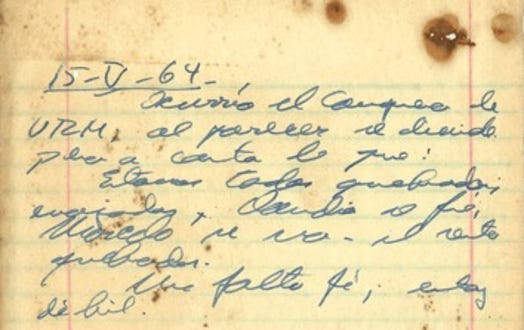 15-V-64-
Ocurrió el Congreso de
al parecer se
pero a costa de que:
Estamos todos quebrados,
Claudia se fue,
Marcelo se va - el resto
quebrados.
Me falta fé, estoy
débil.